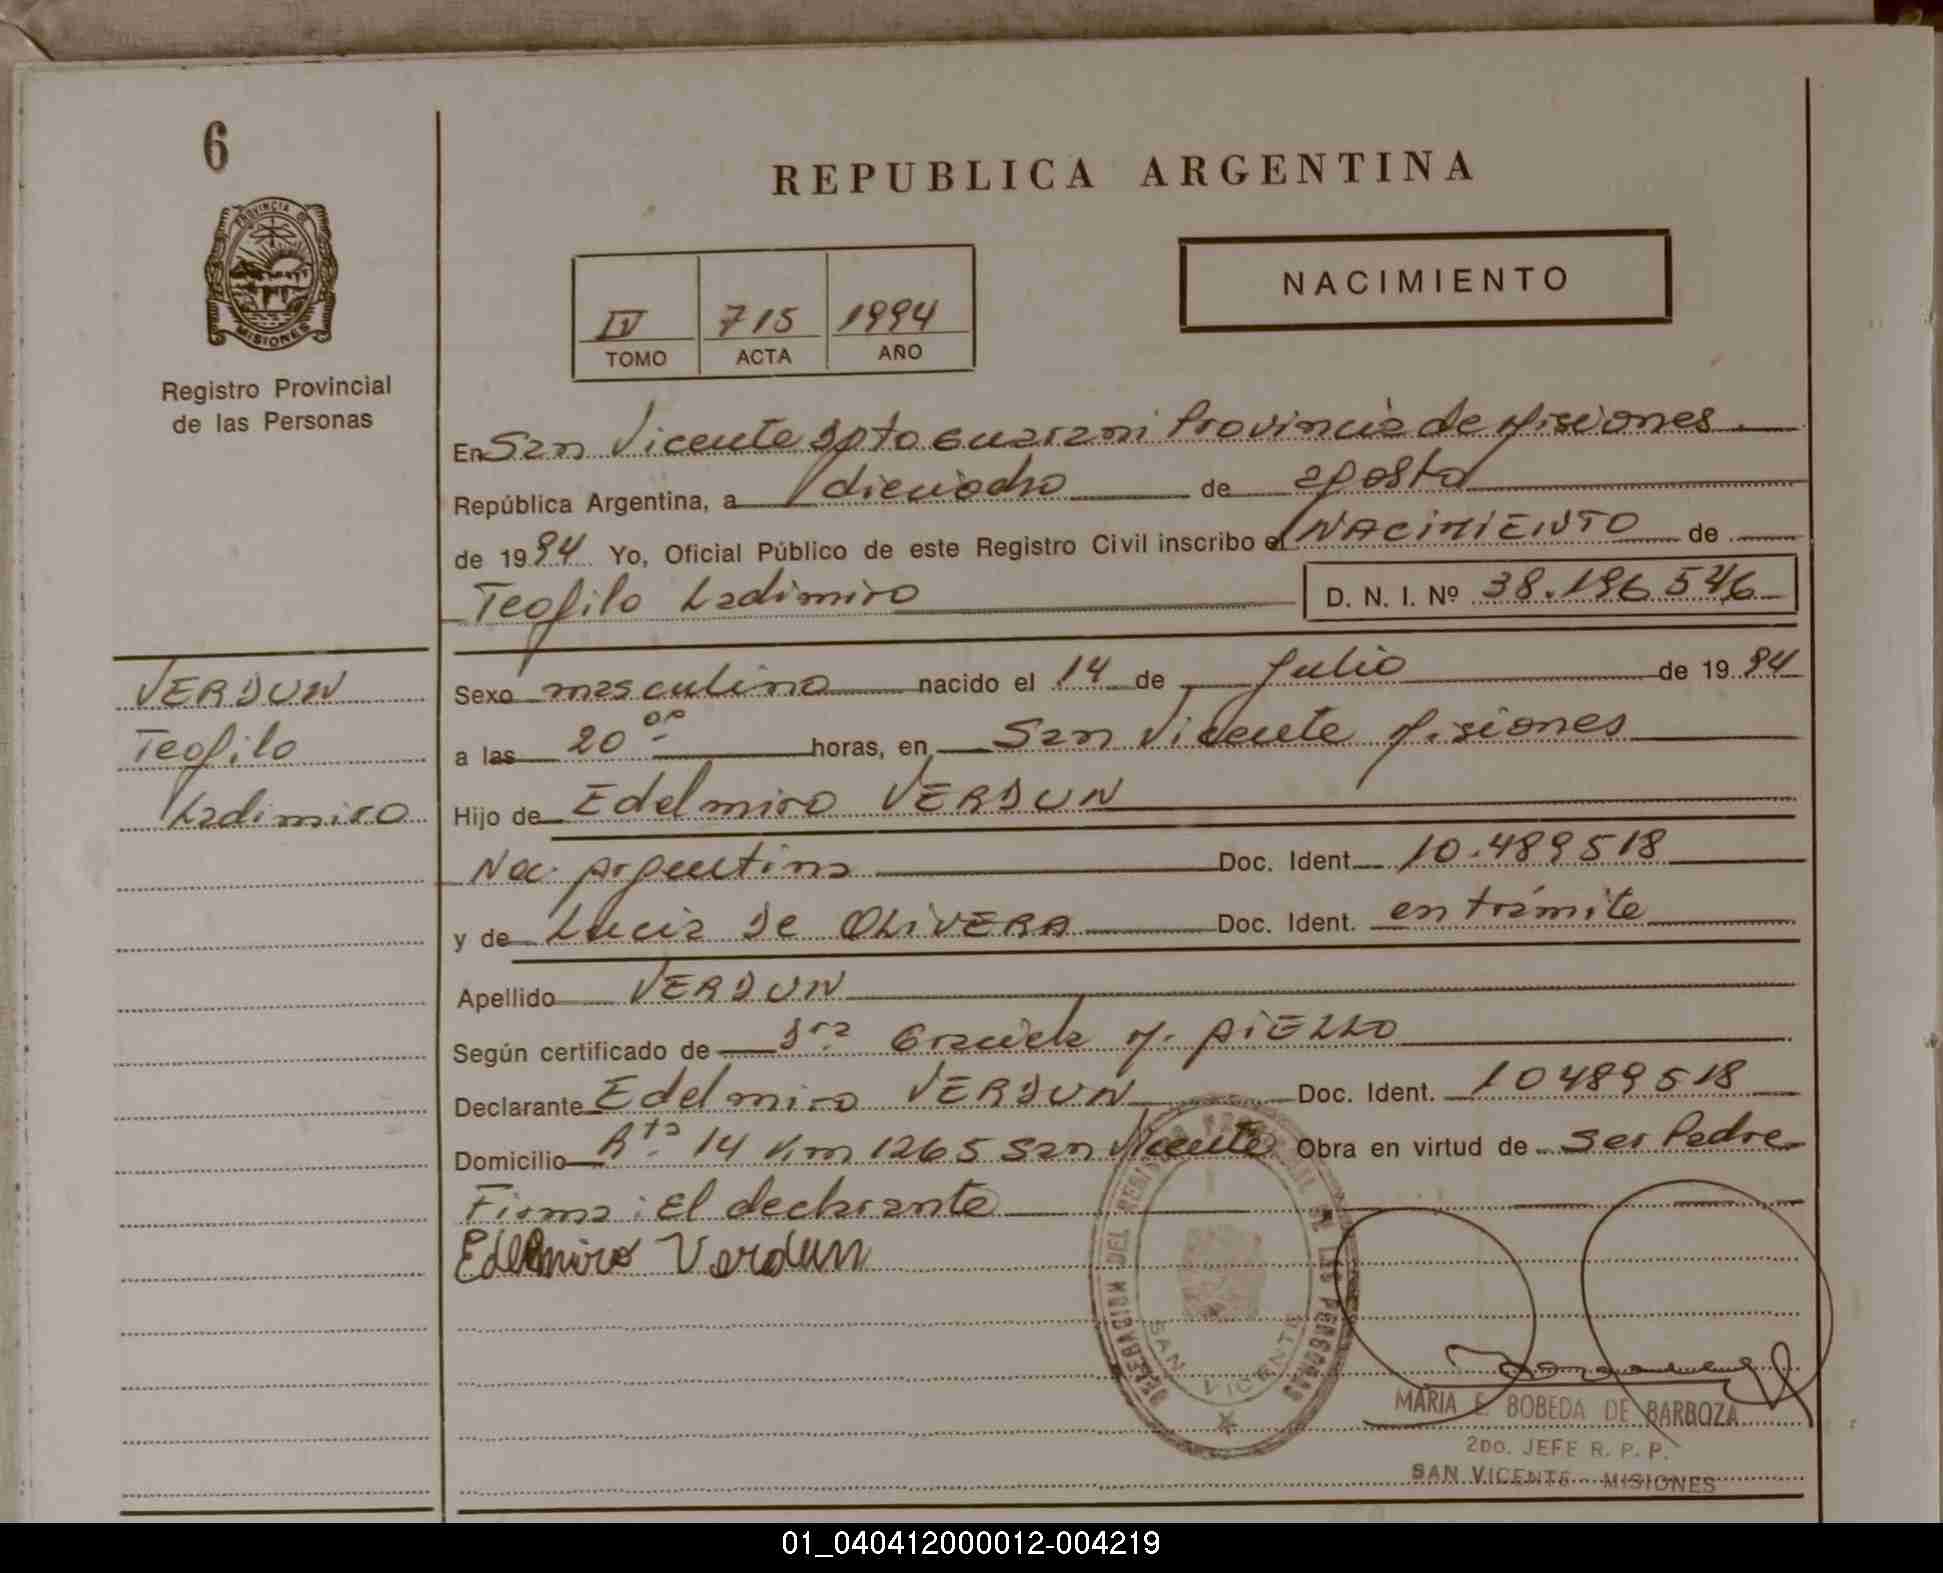 6
PROVINCIA DE
MISIONES
Registro Provincial
de las Personas
REPUBLICA ARGENTINA
NACIMIENTO
IV 715 1994
TOMO ACTA AÑO
En San Vicente Dpto Guarani Provincia de Misiones
República Argentina, a dieciocho de agosto
de 1994 Yo, Oficial Público de este Registro Civil inscribo el NACIMIENTO de
Teofilo Ladimiro D. N. I. Nº 38.196546
VERDUN
Teofilo
Ladimiro
Sexo masculino nacido el 14 de Julio de 1994
a las 20 00 horas, en San Vicente Misiones
Hijo de Edelmiro VERDUN
Nac. Argentina Doc. Ident. 10.489518
y de Lucia De OLIVERA Doc. Ident. en trámite
Apellido VERDUN
Según certificado de Dra Graciela M. AIELLO
Declarante Edelmiro VERDUN Doc. Ident. 10489518
Domicilio Rta. 14 Km 1265 San Vicente Obra en virtud de ser Padre
Firma: El declarante
Edelmiro Verdun
DELEGACION DEL REGISTRO PROVINCIAL DE LAS PERSONAS
SAN VICENTE
MARIA E. BOBEDA DE BARBOZA
2DO. JEFE R. P. P.
SAN VICENTE - MISIONES
01_040412000012-004219